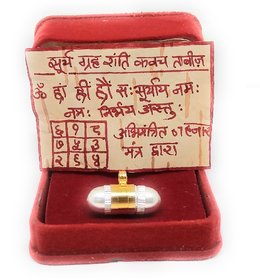 सूर्य ग्रह शांति कवच ताबीज़
ॐ ह्रां ह्रीं ह्रौं सः सूर्याय नमः
नमः निर्भय अस्तुः
६ १ ८
७ ५ ३
२ ९ ४
अभिमंत्रित ०७ हजार
मंत्र द्वारा